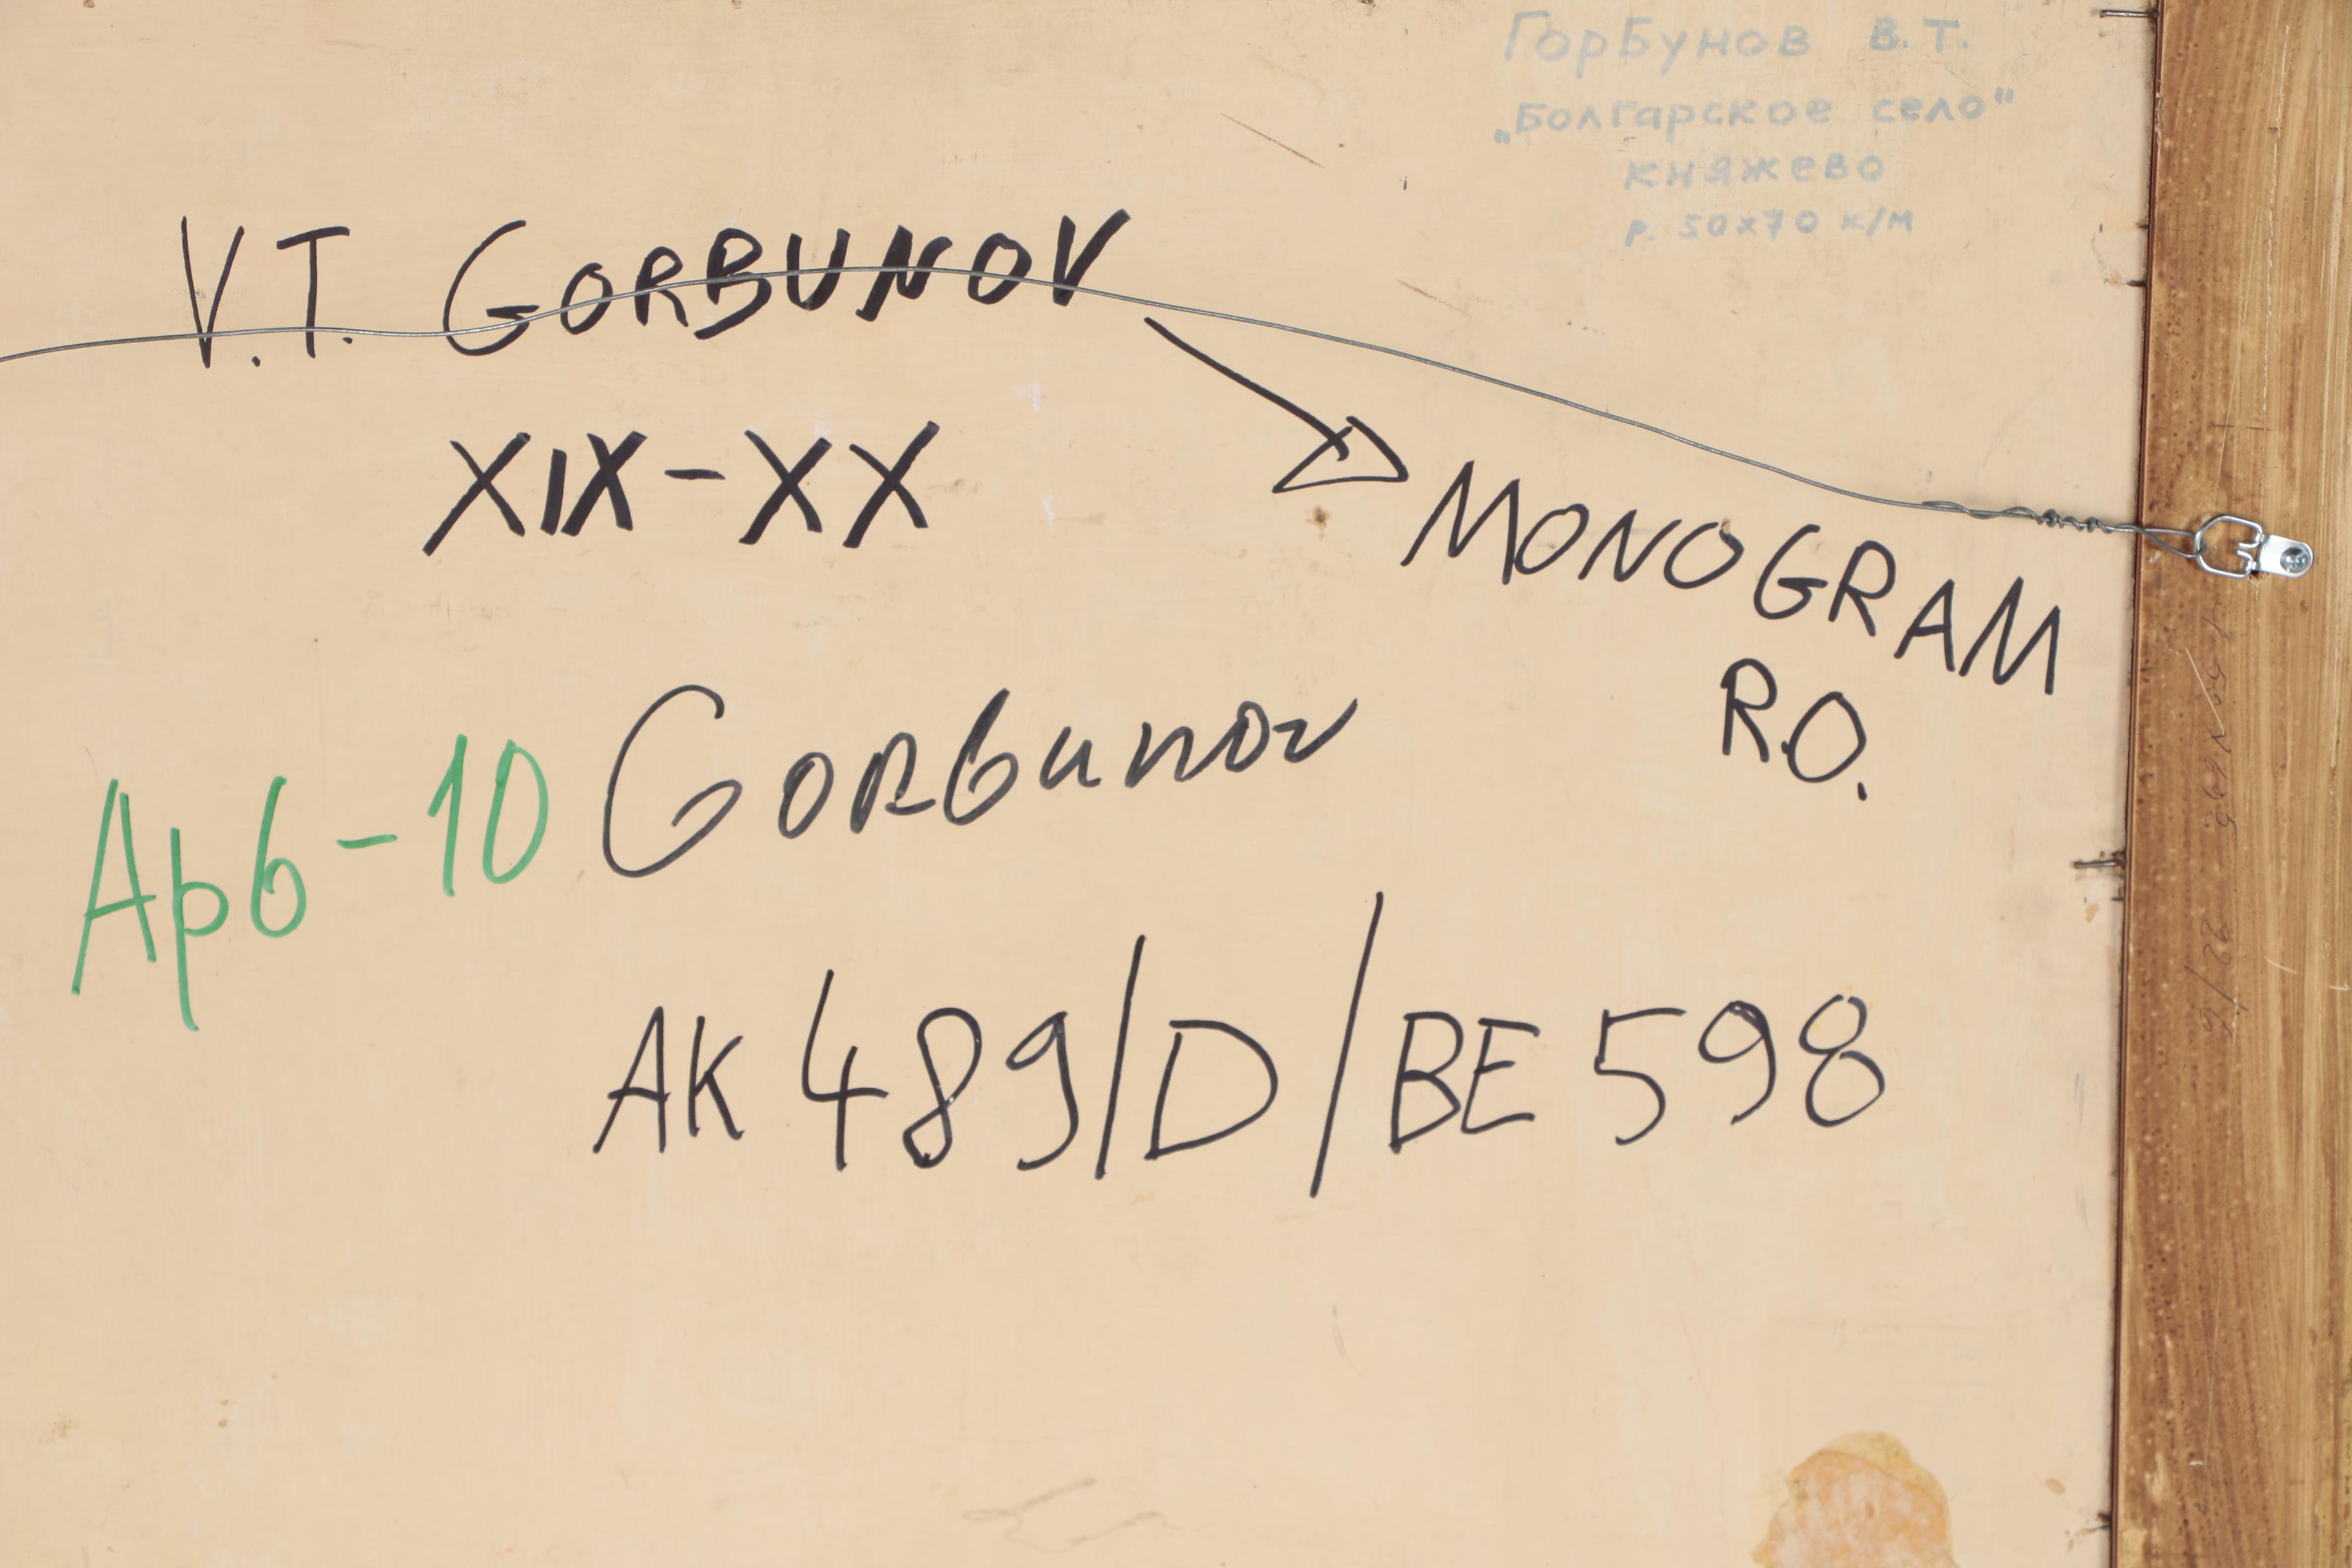 ГорБунов В.Т.
„Болгарское село"
княжево
р. 50х70 к/м
V.T. GORBUNOV
XIX-XX
MONOGRAM
R.O.
Gorbunov
Арб-10
AK 489/D/BE 598